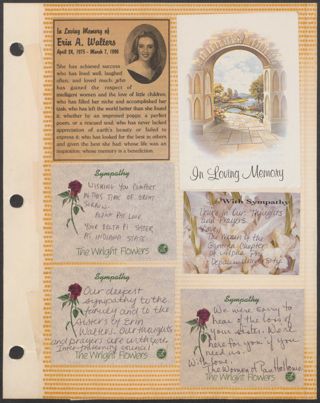 In Loving Memory of
Erin A. Walters
April 28, 1975 - March 7, 1996
She has achieved success
who has lived well, laughed
often, and loved much; who
has gained the respect of
intelligent women and the love of little children;
who has filled her niche and accomplished her
task; who has left the world better than she found
it, whether by an improved poppy, a perfect
poem, or a rescued soul; who has never lacked
appreciation of earth's beauty or failed to
express it; who has looked for the best in others
and given the best she had; whose life was an
inspiration; whose memory is a benediction.
In Loving Memory
Sympathy
Wishing you comfort
in this time of great
sorrow.
Your Delta Pi sister
at Indiana State
The Wright Flowers
With Sympathy
You're in Our Thoughts
and Prayers.
Love,
The Women of the
Chapter
of Alpha Phi
State
Sympathy
Our deepest
sympathy to the
family and to the
sisters of Erin
Walters. Our thoughts
and prayers are with you.
Inter-fraternity Council
The Wright Flowers
Sympathy
We were sorry to
hear of the loss of
your sister. We're
here for you if you
need us.
With love,
The Women of
The Wright Flowers